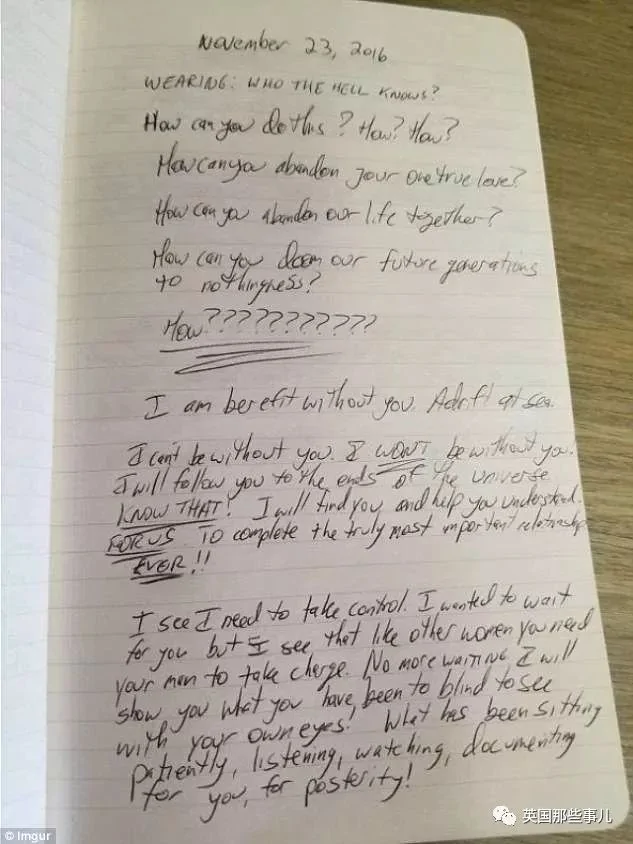 November 23, 2016
WEARING: WHO THE HELL KNOWS?
How can you do this? How? How?
How can you abandon your one true love?
How can you abandon our life together?
How can you doom our future generations
to nothingness?
How???????????
I am berefit without you. Adrift at sea.
I can't be without you. I WON'T be without you.
I will follow you to the ends of the universe
KNOW THAT! I will find you and help you understand.
FOR US To complete the truly most important relationship
EVER!!
I see I need to take control. I wanted to wait
for you but I see that like other women you need
your man to take charge. No more waiting I will
show you what you have been to blind to see
with your own eyes! What has been sitting
patiently, listening, watching, documenting
for you, for posterity!
© Imgur
英国那些事儿